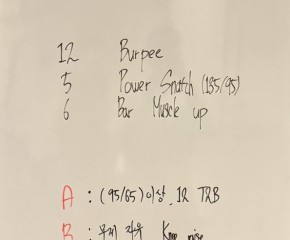 12 Burpee
5 Power Snatch (135/95)
6 Bar Muscle up
A : (95/65) 이상, 12 T2B
B : 무게 자유 Knee raise